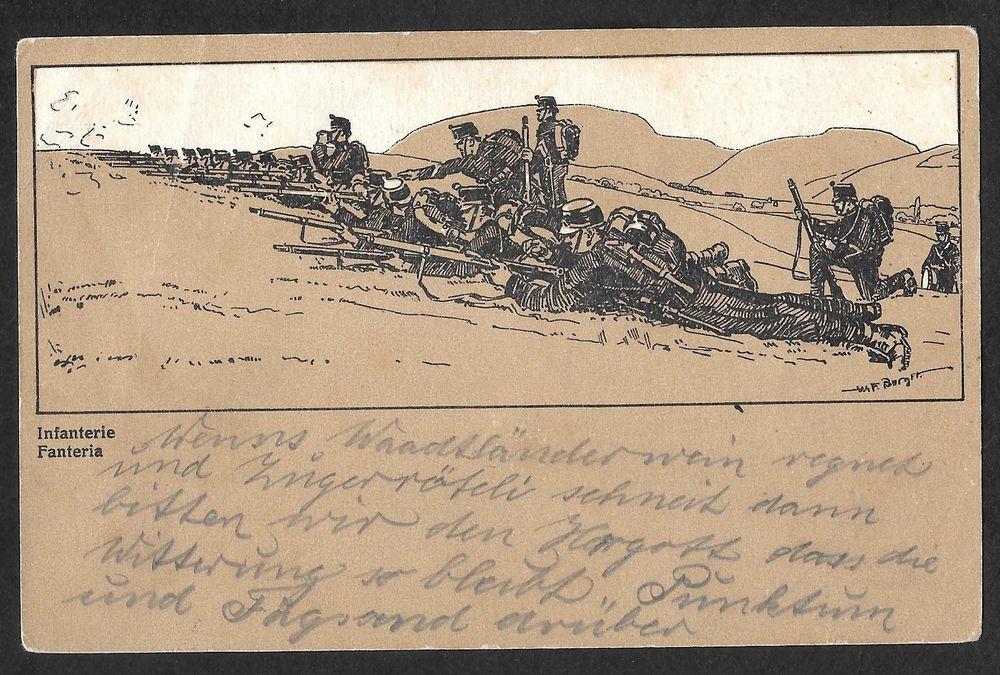 W.F. Burger.
Infanterie
Fanteria
Wenns Waadtländerwein regnet
und Zugerröteli schneit dann
bitten wir den Hergott dass die
Witterung so bleibt. Punktum
und drüber